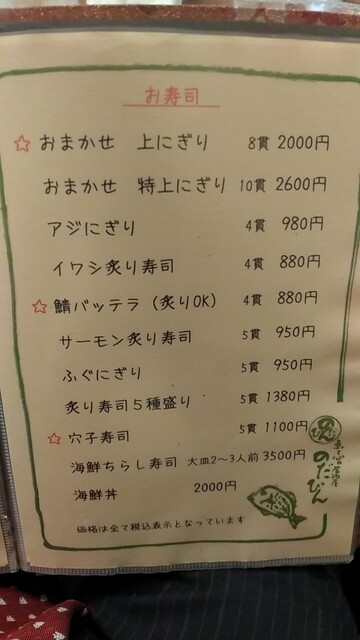 お寿司
☆おまかせ 上にぎり 8貫 2000円
おまかせ 特上にぎり 10貫 2600円
アジにぎり 4貫 980円
イワシ炙り寿司 4貫 880円
☆鯖バッテラ（炙りOK） 4貫 880円
サーモン炙り寿司 5貫 950円
ふぐにぎり 5貫 950円
炙り寿司5種盛り 5貫 1380円
☆穴子寿司 5貫 1100円
海鮮ちらし寿司 大皿2〜3人前 3500円
海鮮丼 2000円
価格は全て税込表示となっています
のだびん